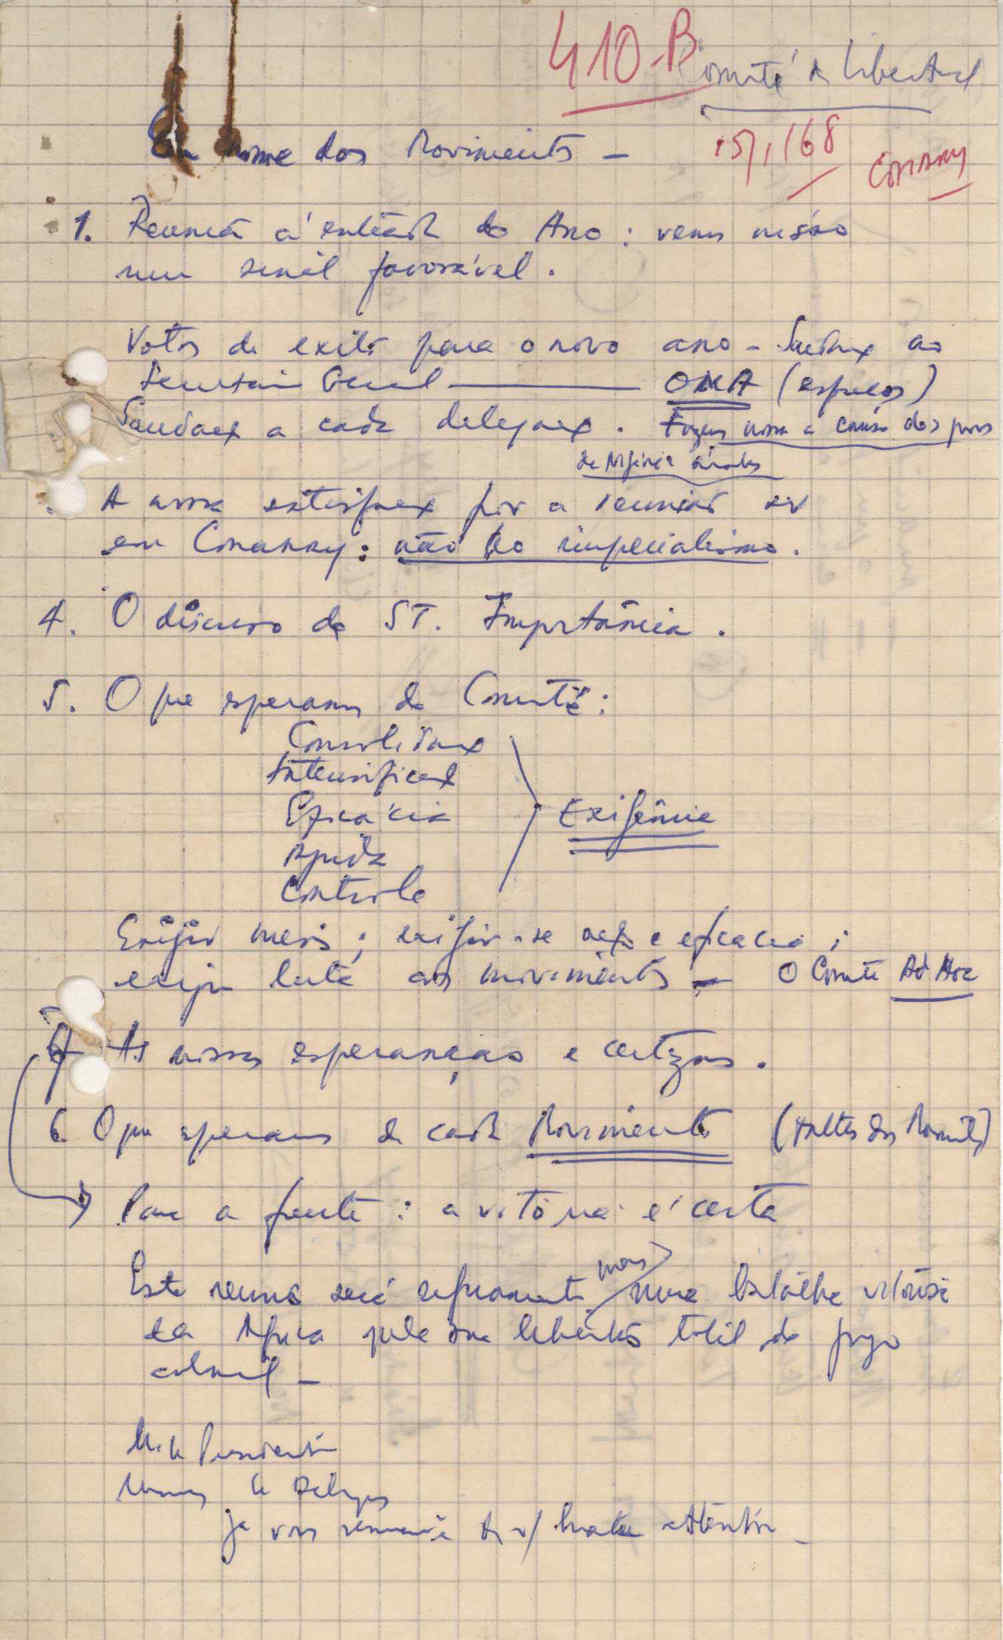 410-B Comité de Libertação
Em nome dos Movimentos —
15/1/68 Conakry
1. Reunião à entrada do Ano: vemos nisso
um sinal favorável.
Votos de exito para o novo ano - Saudações ao
Secretário Geral — OUA (esforços)
Saudações a cada delegação. Fazemos nossa a causa dos povos
da Nigéria árabes
A nossa satisfação por a reunião ser
em Conakry: não ao imperialismo.
4. O discurso do ST. Importância.
5. O que esperamos do Comité:
Consolidação
Intensificação
Eficácia
Ajuda
Controle
Exigência
Exigir mais; exigir-se mais e eficacia;
exigir luta aos movimentos — O Comité Ad Hoc
As nossas esperanças e certezas.
6. O que esperamos de cada Movimento ( dos )
Para a frente: a vitória é certa
Esta reunião será mais uma batalha vitoriosa
da Africa pela sua libertação total do jugo
colonial —
Presidente
já vos atenção —